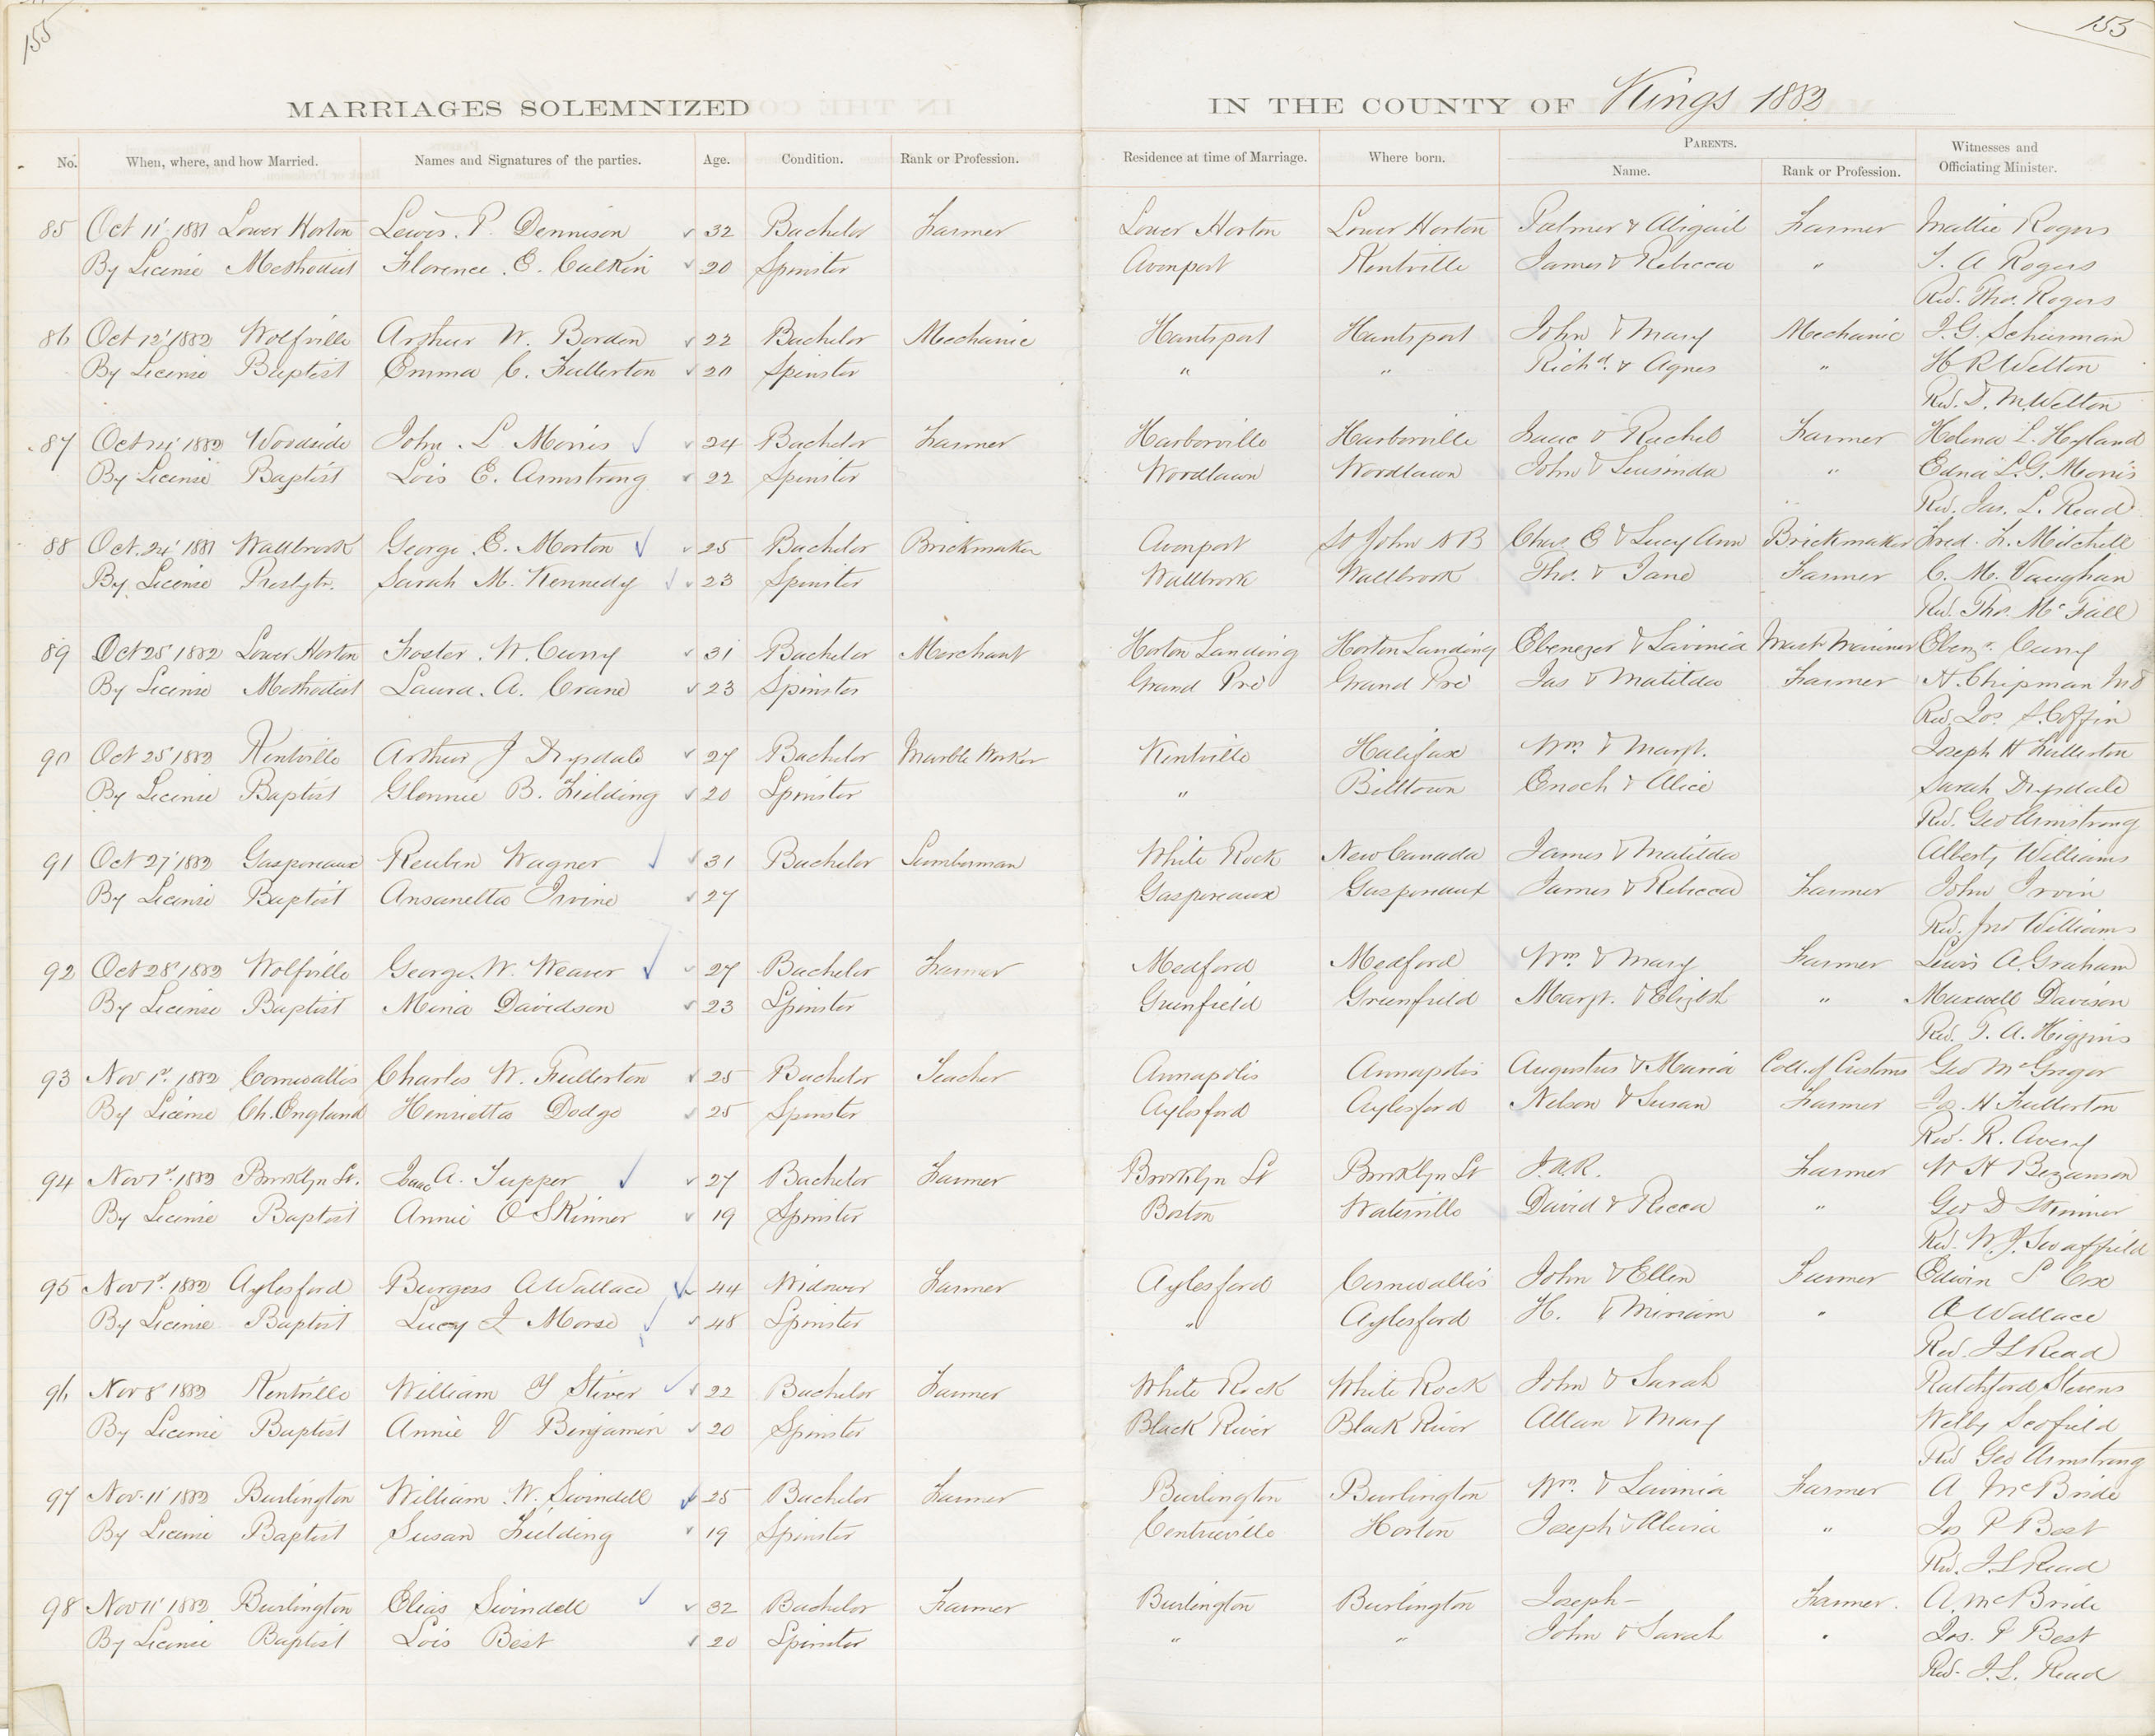 155
153
MARRIAGES SOLEMNIZED
IN THE COUNTY OF Kings 1882
No. When, where, and how Married. Names and Signatures of the parties. Age. Condition. Rank or Profession. Residence at time of Marriage. Where born. PARENTS. Name. Rank or Profession. Witnesses and Officiating Minister.
85 Oct 11' 1881 Lower Horton Lewis. P. Dennison 32 Bachelor Farmer Lower Horton Lower Horton Palmer & Abigail Farmer Mattie Rogers
By License Methodist Florence. E. Calkin 20 Spinster Avonport Kentville James & Rebecca " T. A Rogers
Rev. Tho. Rogers
86 Oct 12' 1882 Wolfville Arthur W. Borden 22 Bachelor Mechanic Hantsport Hantsport John & Mary Mechanic J. G. Schurman
By License Baptist Emma C. Fullerton 20 Spinster " " Richd. & Agnes " H R Welton
Rev. D. M. Welton
87 Oct 14' 1882 Woodside John. L. Morris 24 Bachelor Farmer Harborville Harborville Isaac & Rachel Farmer Helena L. Hyland
By License Baptist Lois E. Armstrong 22 Spinster Woodlawn Woodlawn John & Lusinda " Edna L. G. Morris
Rev. Jas. L. Read
88 Oct. 24' 1881 Wallbrook George. E. Morton 25 Bachelor Brickmaker Avonport St John N B Chas E & Lucy Ann Brickmaker Fred. L. Mitchell
By License Presbytr. Sarah M. Kennedy 23 Spinster Wallbrook Wallbrook Tho. & Jane Farmer C. M. Vaughan
Rev. Tho. McFall
89 Oct 25' 1882 Lower Horton Foster. W. Curry 31 Bachelor Merchant Horton Landing Horton Landing Ebenezer & Lavinia Mast. Mariner Ebenr. Curry
By License Methodist Laura. A. Crane 23 Spinster Grand Pré Grand Pré Jas & Matilda Farmer H. Chipman MD
Rev. Jos. S. Coffin
90 Oct 25' 1882 Kentville Arthur J Drysdale 27 Bachelor Marble Worker Kentville Halifax Wm & Margt. Joseph H Fullerton
By License Baptist Glennie B. Fielding 20 Spinster " Billtown Enoch & Alice Sarah Drysdale
Rev. Geo Armstrong
91 Oct 27' 1882 Gaspereaux Reuben Wagner 31 Bachelor Lumberman White Rock New Canada James & Matilda Alberty Williams
By License Baptist Ansanetta Irvine 27 Gaspereaux Gaspereaux James & Rebecca Farmer John Irvin
Rev. Jno Williams
92 Oct 28' 1882 Wolfville George. W. Weaver 27 Bachelor Farmer Medford Medford Wm & Mary Farmer Lewis A. Graham
By License Baptist Mina Davidson 23 Spinster Greenfield Greenfield Margt. & Elizbh " Maxwell Davison
Rev. T. A. Higgins
93 Nov 1st. 1882 Cornwallis Charles W. Fullerton 25 Bachelor Teacher Annapolis Annapolis Augustus & Maria Coll. of Customs Geo McGregor
By License Ch. England Henrietta Dodge 25 Spinster Aylesford Aylesford Nelson & Susan Farmer H Fullerton
Rev. R. Avery
94 Nov 1st. 1882 Brooklyn St. Isaac A. Tupper 27 Bachelor Farmer Brooklyn St Brooklyn St J. A. R. Farmer W H Bezanson
By License Baptist Annie O Skinner 19 Spinster Boston Waterville David & Recca " Geo D Skinner
Rev. W. J. Swaffield
95 Nov 1st. 1882 Aylesford Burgess A Wallace 44 Widower Farmer Aylesford Cornwallis John & Ellen Farmer Edwin S Cox
By License Baptist Lucy J Morse 48 Spinster " Aylesford H. & Miriam " A Wallace
Rev. J L Read
96 Nov 8' 1882 Kentville William Y Stiver 22 Bachelor Farmer White Rock White Rock John & Sarah Ratchford Stevens
By License Baptist Annie V Benjamin 20 Spinster Black River Black River Allan & Mary Welby Scofield
Rev Geo Armstrong
97 Nov. 11' 1882 Burlington William. W. Swindell 25 Bachelor Farmer Burlington Burlington Wm. & Lavinia Farmer A McBride
By License Baptist Susan Fielding 19 Spinster Centreville Horton Joseph & Alivia " Jos P Best
Rev. J L Read
98 Nov 11' 1882 Burlington Elias Swindell 32 Bachelor Farmer Burlington Burlington Joseph – Farmer. A. McBride
By License Baptist Lois Best 20 Spinster " " John & Sarah " Jos. P Best
Rev. J. L. Read